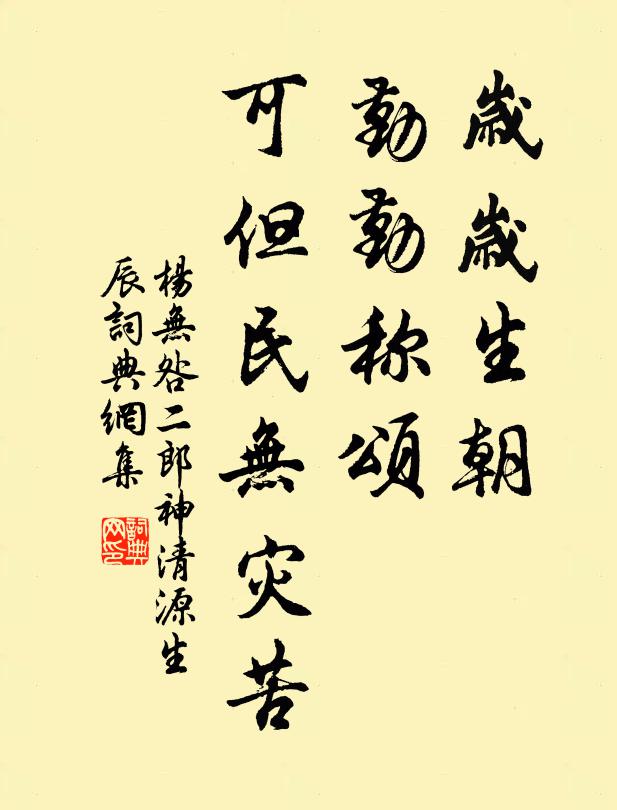 歲歲生朝
勤勤称頌
可但民無灾苦
楊無咎二郎神清源生
辰詞典網集
詞典
网印